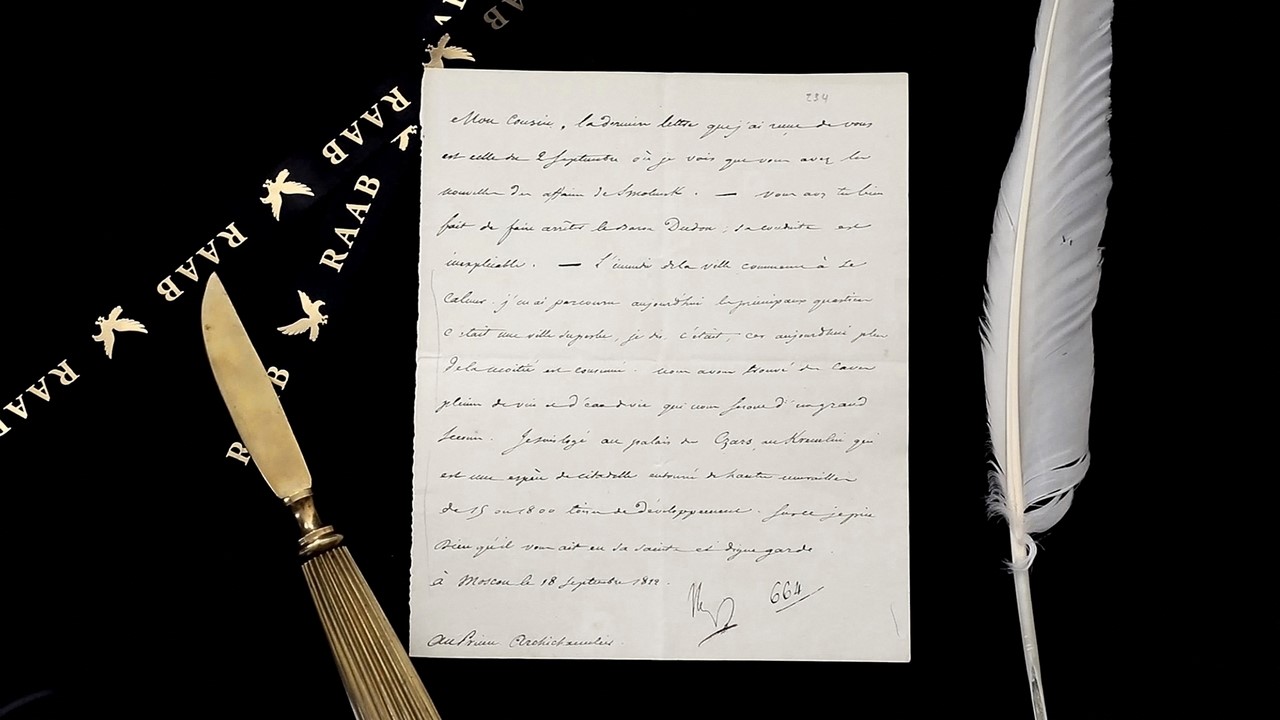 234
Mon Cousin, la dernière lettre que j'ai reçue de vous
est celle du 2 Septembre où je vois que vous avez les
nouvelles des affaires de Smolensk. — Vous avez très bien
fait de faire arrêter le Baron Dudon; sa conduite est
inexplicable. — L'incendie de la ville commence à se
calmer. j'en ai parcouru aujourd'hui les principaux quartiers
c'était une ville superbe, je dis c'était, car aujourd'hui plus
de la moitié est consumée. nous avons trouvé des caves
pleines de vin et d'eau de vie qui nous seront d'un grand
secours. Je suis logé au palais des Czars, au Kremlin qui
est une espèce de citadelle entourée de hautes murailles
de 15 ou 1800 toises de développement. Sur ce je prie
Dieu qu'il vous ait en sa sainte et digne garde
à Moscou le 18 Septembre 1812.
664
Au Prince Archichancelier.
RAAB
RAAB
RAAB
RAAB
RAAB